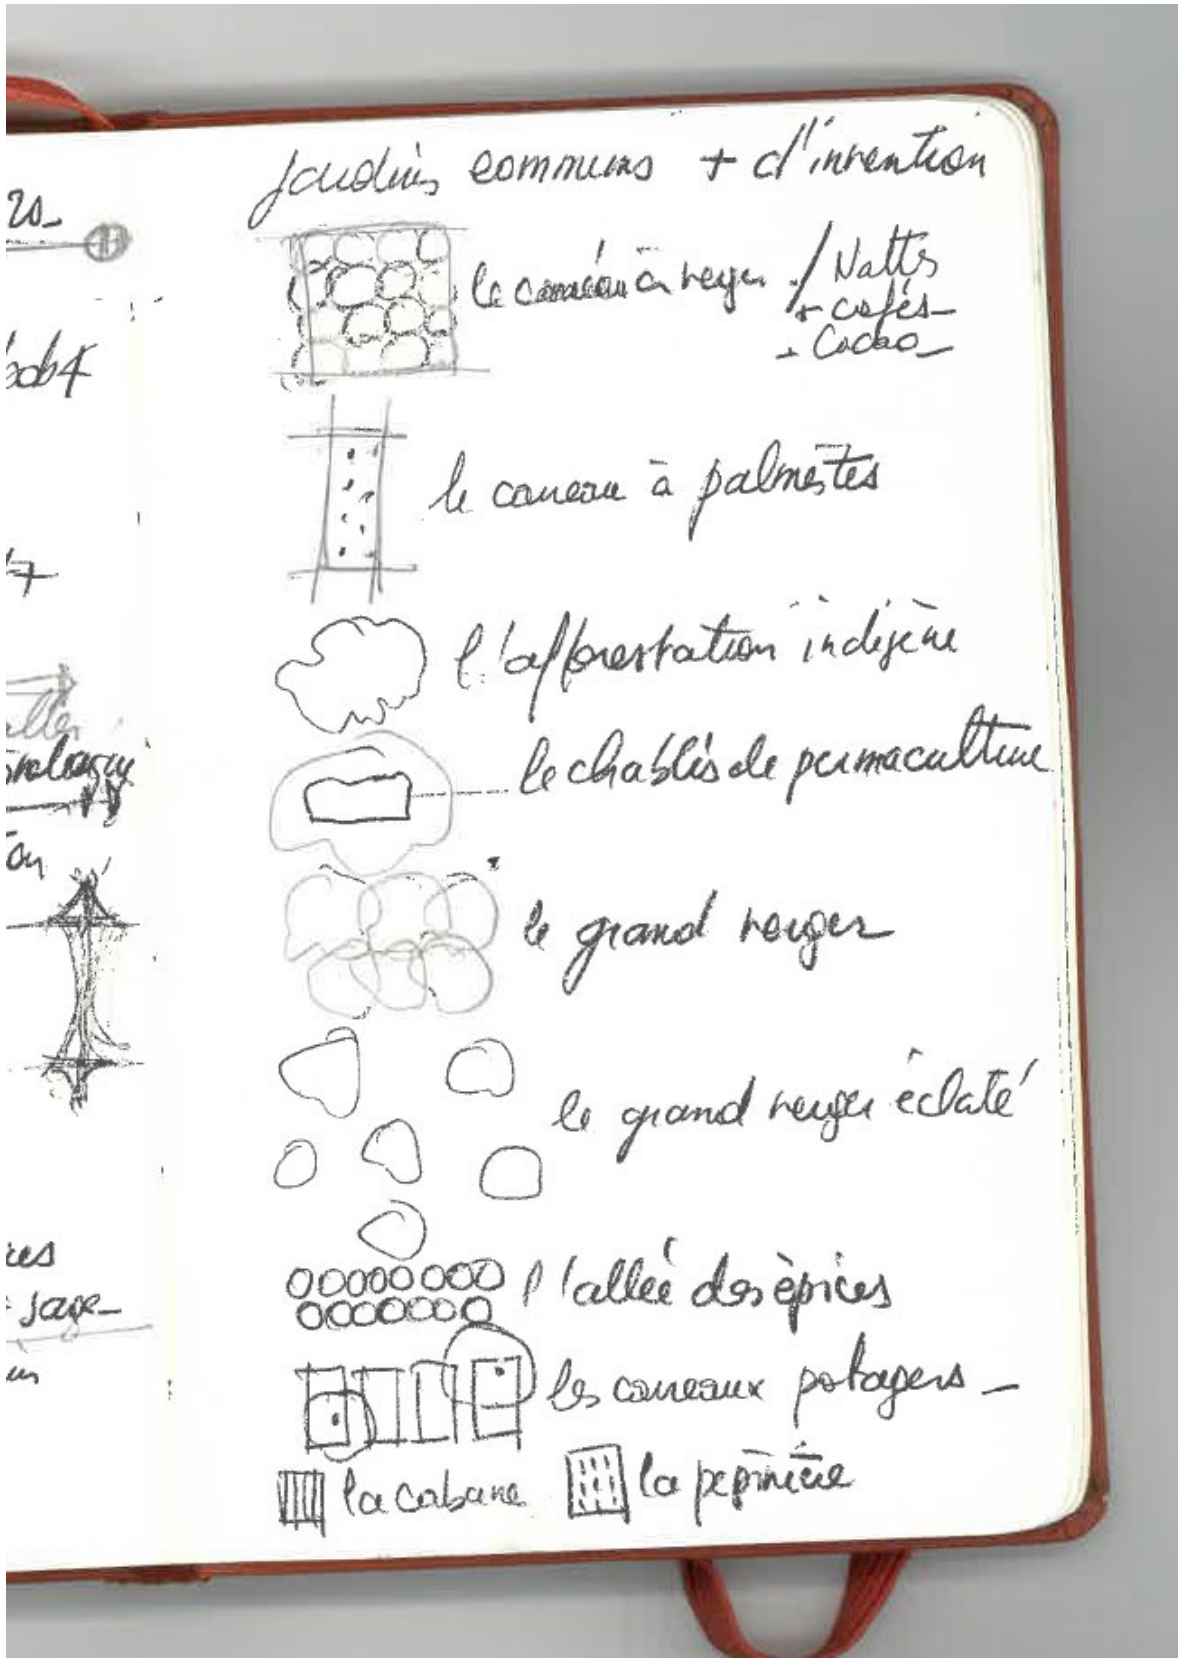 rs_
bob4
7
on
jardins communs + d'invention
le carreau à verger / Natts
+ cafés_
+ Cacao_
le carreau à palmistes
l'afforestation indigène
le chablis de permaculture
le grand verger
le grand verger éclaté
l'allée des épices
les carreaux potagers_
la cabane la pépinière